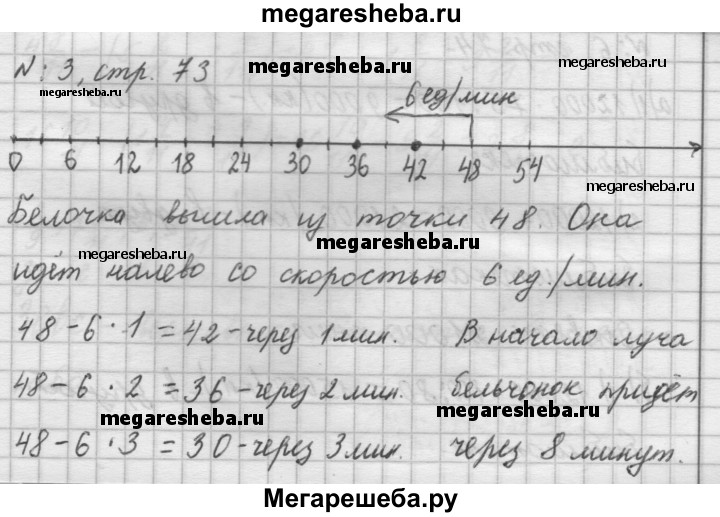 megaresheba.ru
N: 3, стр. 73
megaresheba.ru
megaresheba.ru
6 ед/мин
0 6 12 18 24 30 36 42 48 54
megaresheba.ru
Белочка вышла из точки 48. Она
megaresheba.ru
megaresheba.ru
идёт налево со скоростью 6 ед./мин.
48 - 6 · 1 = 42 - через 1 мин. В начало луча
48 - 6 · 2 = 36 - через 2 мин. бельчонок придёт
megaresheba.ru
megaresheba.ru
48 - 6 · 3 = 30 - через 3 мин. через 8 минут.
Мегарешеба.ру